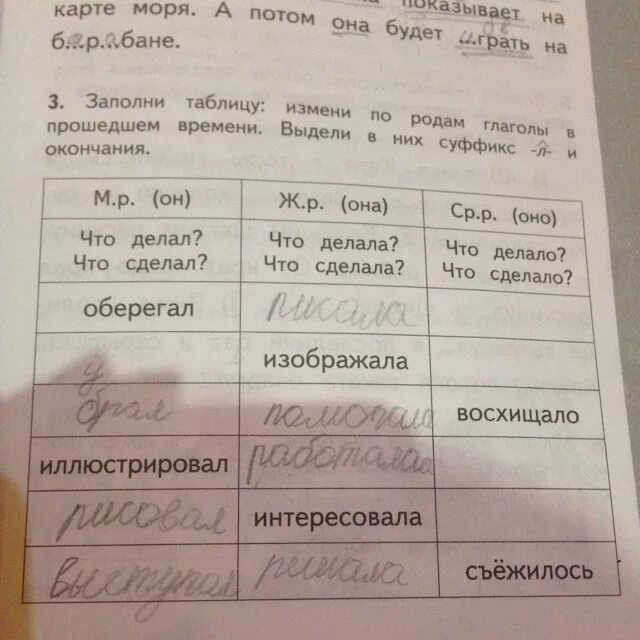 показывает на
карте моря. А потом она будет играть на
б..р.бане.
3. Заполни таблицу: измени по родам глаголы в
прошедшем времени. Выдели в них суффикс -л- и
окончания.
М.р. (он) Ж.р. (она) Ср.р. (оно)
Что делал? Что делала? Что делало?
Что сделал? Что сделала? Что сделало?
оберегал писала
изображала
у
брал помогала восхищало
иллюстрировал работала
рисовал интересовала
выступал решала съёжилось